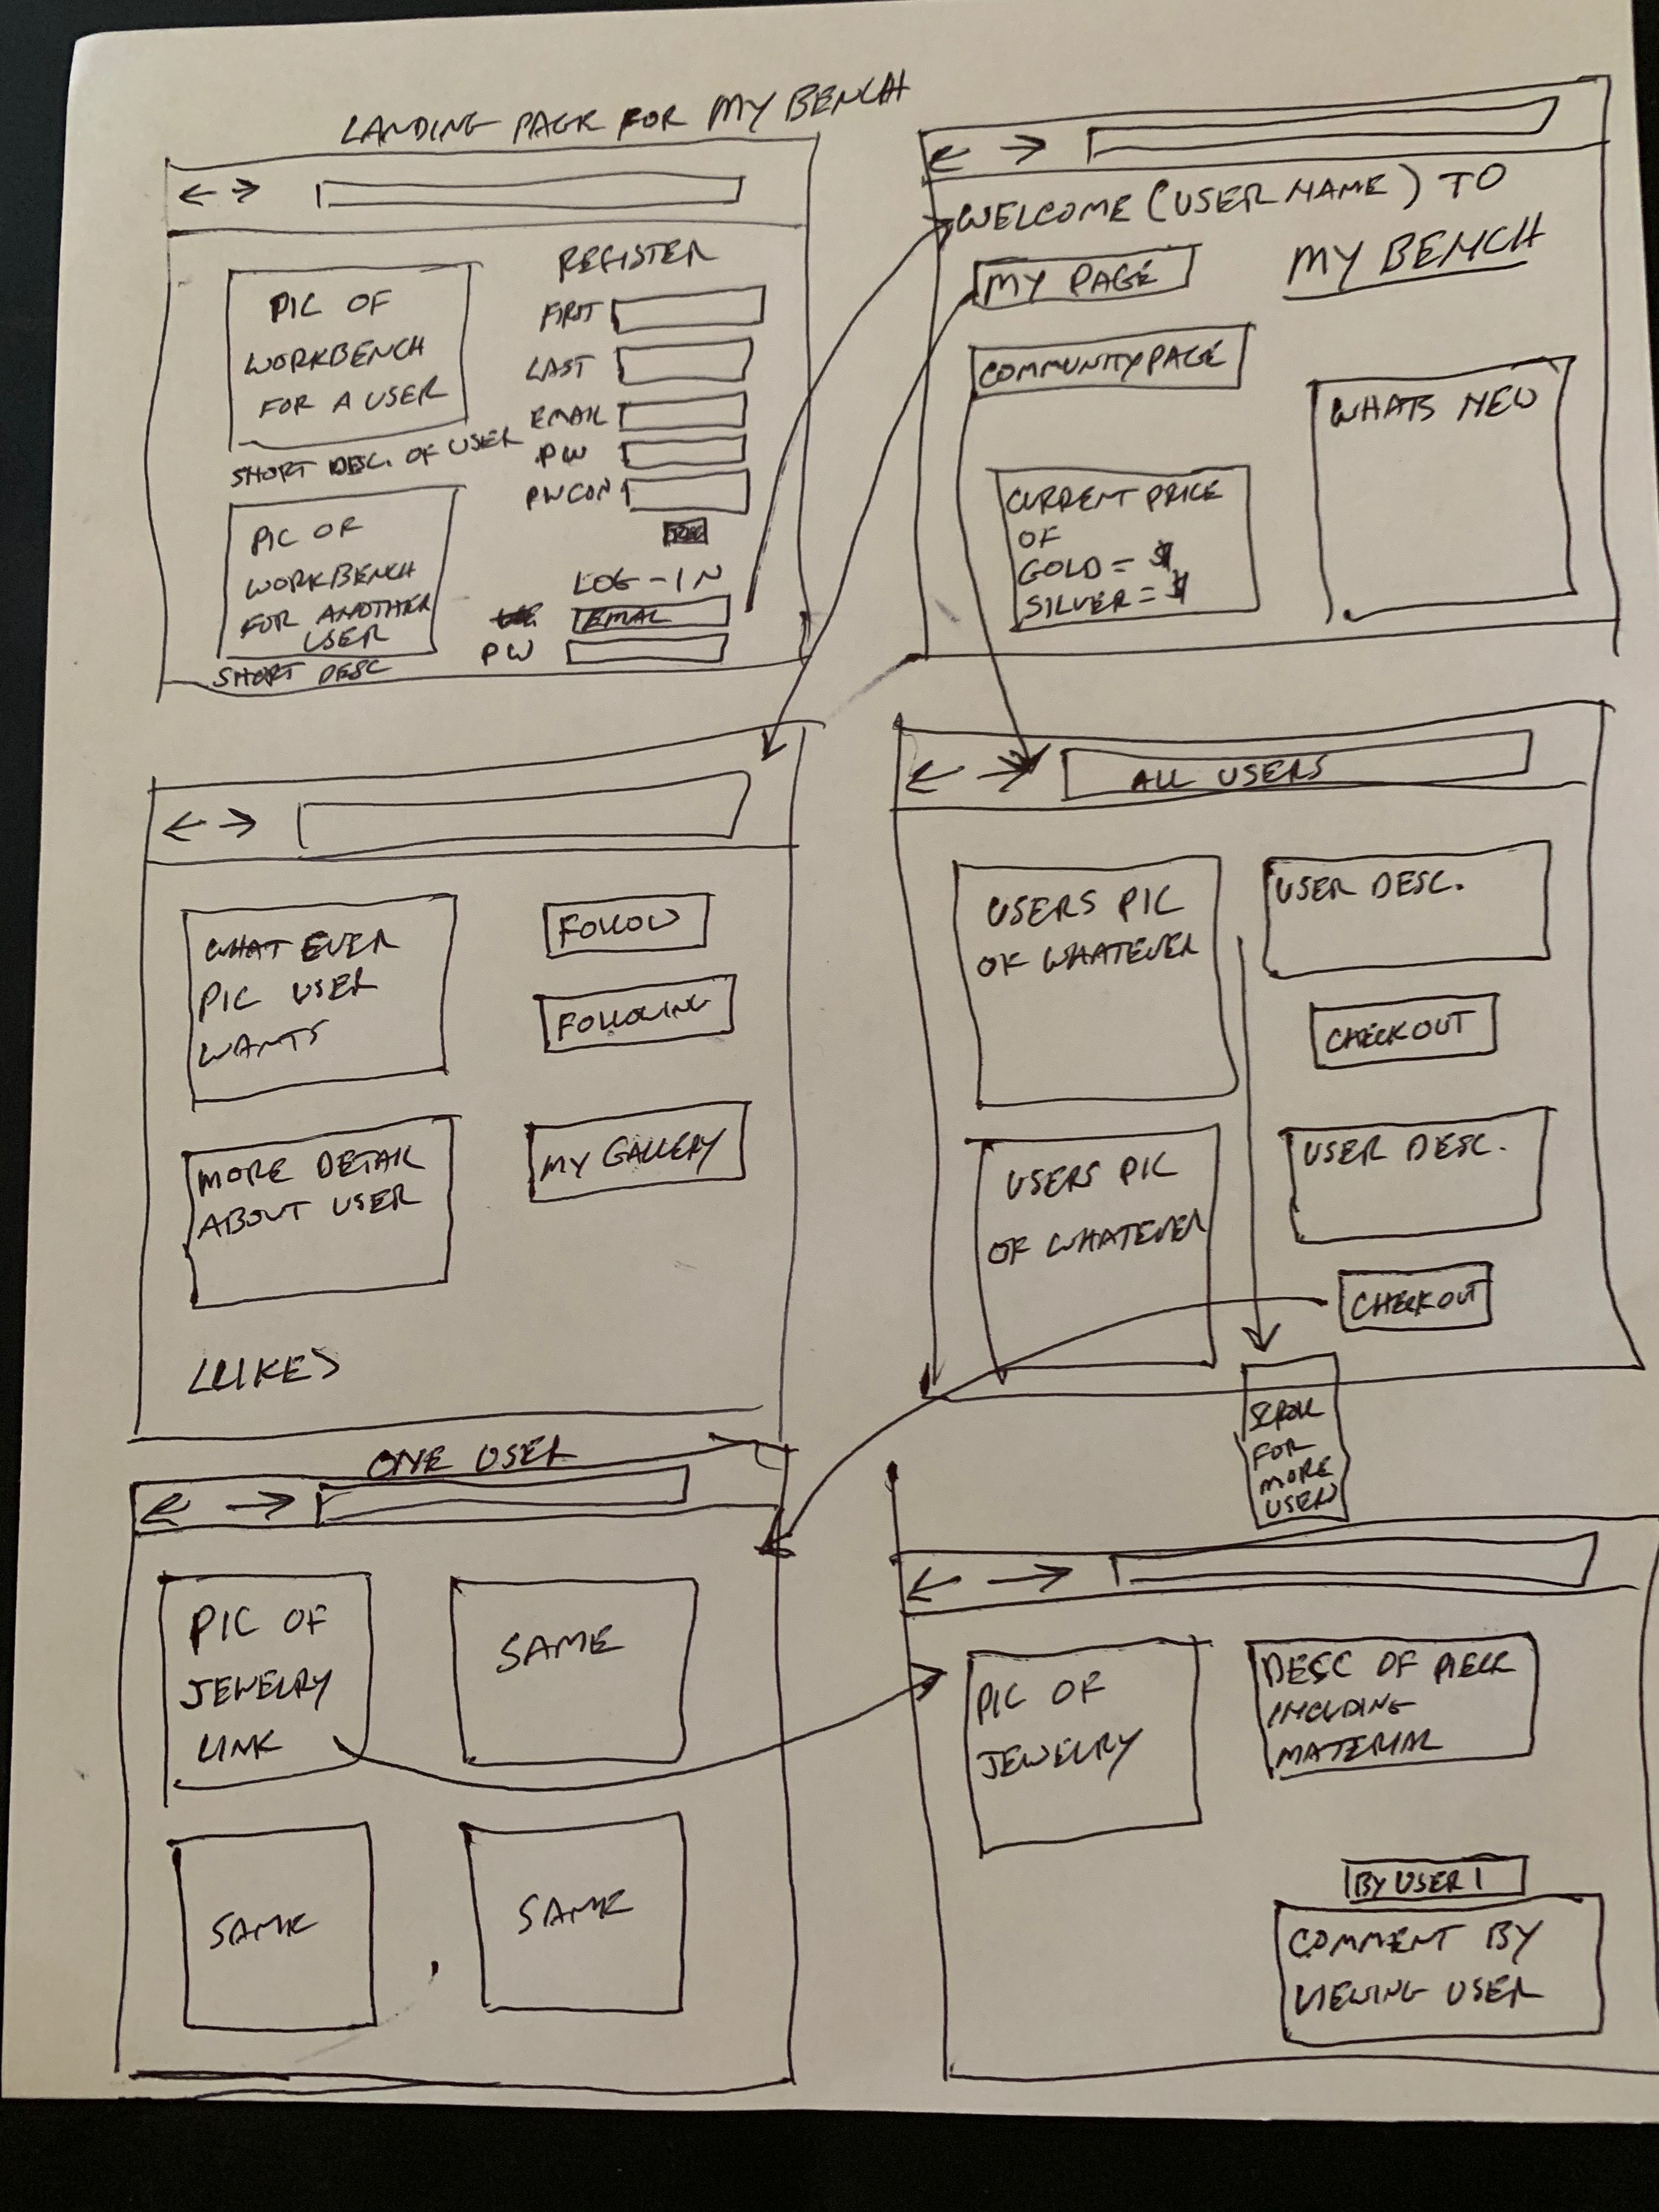 LANDING PAGE FOR MY BENCH
PIC OF
WORKBENCH
FOR A USER
SHORT DESC. OF USER
PIC OF
WORKBENCH
FOR ANOTHER
USER
SHORT DESC
REGISTER
FIRST
LAST
EMAIL
PW
PWCON
LOG-IN
EMAIL
PW
WELCOME (USER NAME) TO
MY BENCH
MY PAGE
COMMUNITY PAGE
CURRENT PRICE
OF
GOLD = $
SILVER = $
WHATS NEW
WHAT EVER
PIC USER
WANTS
FOLLOW
FOLLOWING
MORE DETAIL
ABOUT USER
MY GALLERY
ALL USERS
USERS PIC
OF WHATEVER
USER DESC.
CHECKOUT
USERS PIC
OF WHATEVER
USER DESC.
CHECKOUT
SCROLL
FOR
MORE
USERS
ONE USER
PIC OF
JEWELRY
LINK
SAME
SAME
SAME
PIC OF
JEWELRY
DESC OF PIECE
INCLUDING
MATERIAL
BY USER 1
COMMENT BY
VIEWING USER